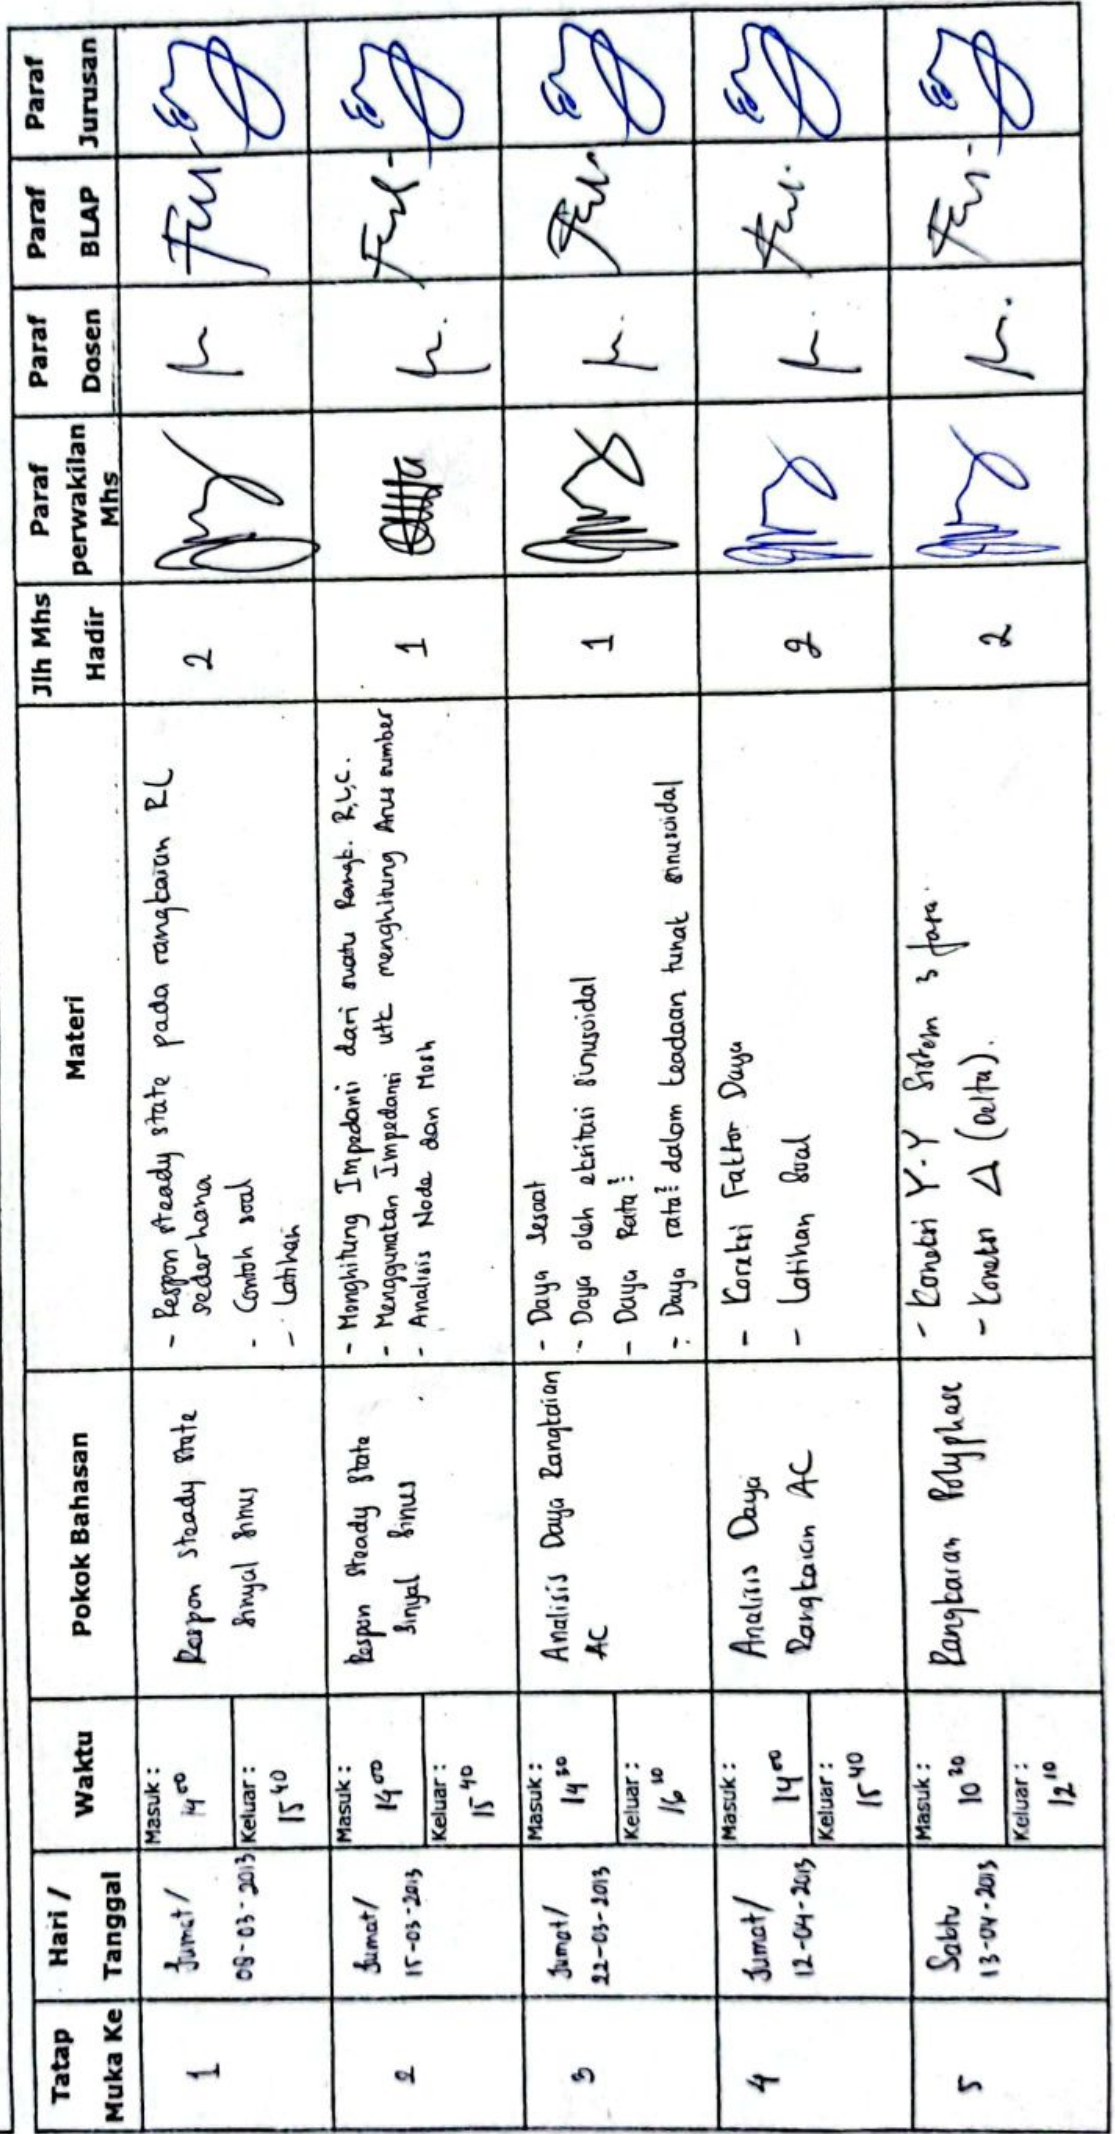 Tatap Muka Ke
Hari / Tanggal
Waktu
Pokok Bahasan
Materi
Jlh Mhs Hadir
Paraf perwakilan Mhs
Paraf Dosen
Paraf BLAP
Paraf Jurusan
1
Jumat/
08-03-2013
Masuk :
14 00
Keluar :
15 40
Respon Steady State
Sinyal Sinus
- Respon steady state pada rangkaian RL
sederhana
- Contoh soal
- Latihan
2
2
Jumat/
15-03-2013
Masuk :
14 00
Keluar :
15 40
Respon Steady State
Sinyal Sinus
- Menghitung Impedansi dari suatu Rangk. R,L,C.
- Menggunakan Impedansi utk menghitung Arus sumber
- Analisis Node dan Mesh
1
3
Jumat/
22-03-2013
Masuk :
14 30
Keluar :
16 10
Analisis Daya Rangkaian
AC
- Daya Sesaat
- Daya oleh eksitasi sinusoidal
- Daya Rata²
- Daya rata² dalam keadaan tunak sinusoidal
1
4
Jumat/
12-04-2013
Masuk :
14 00
Keluar :
15 40
Analisis Daya
Rangkaian AC
- Koreksi Faktor Daya
- Latihan Soal
2
5
Sabtu
13-04-2013
Masuk :
10 30
Keluar :
12 10
Rangkaian Polyphase
- Koneksi Y-Y Sistem 3 fasa.
- Koneksi Δ (Delta).
2